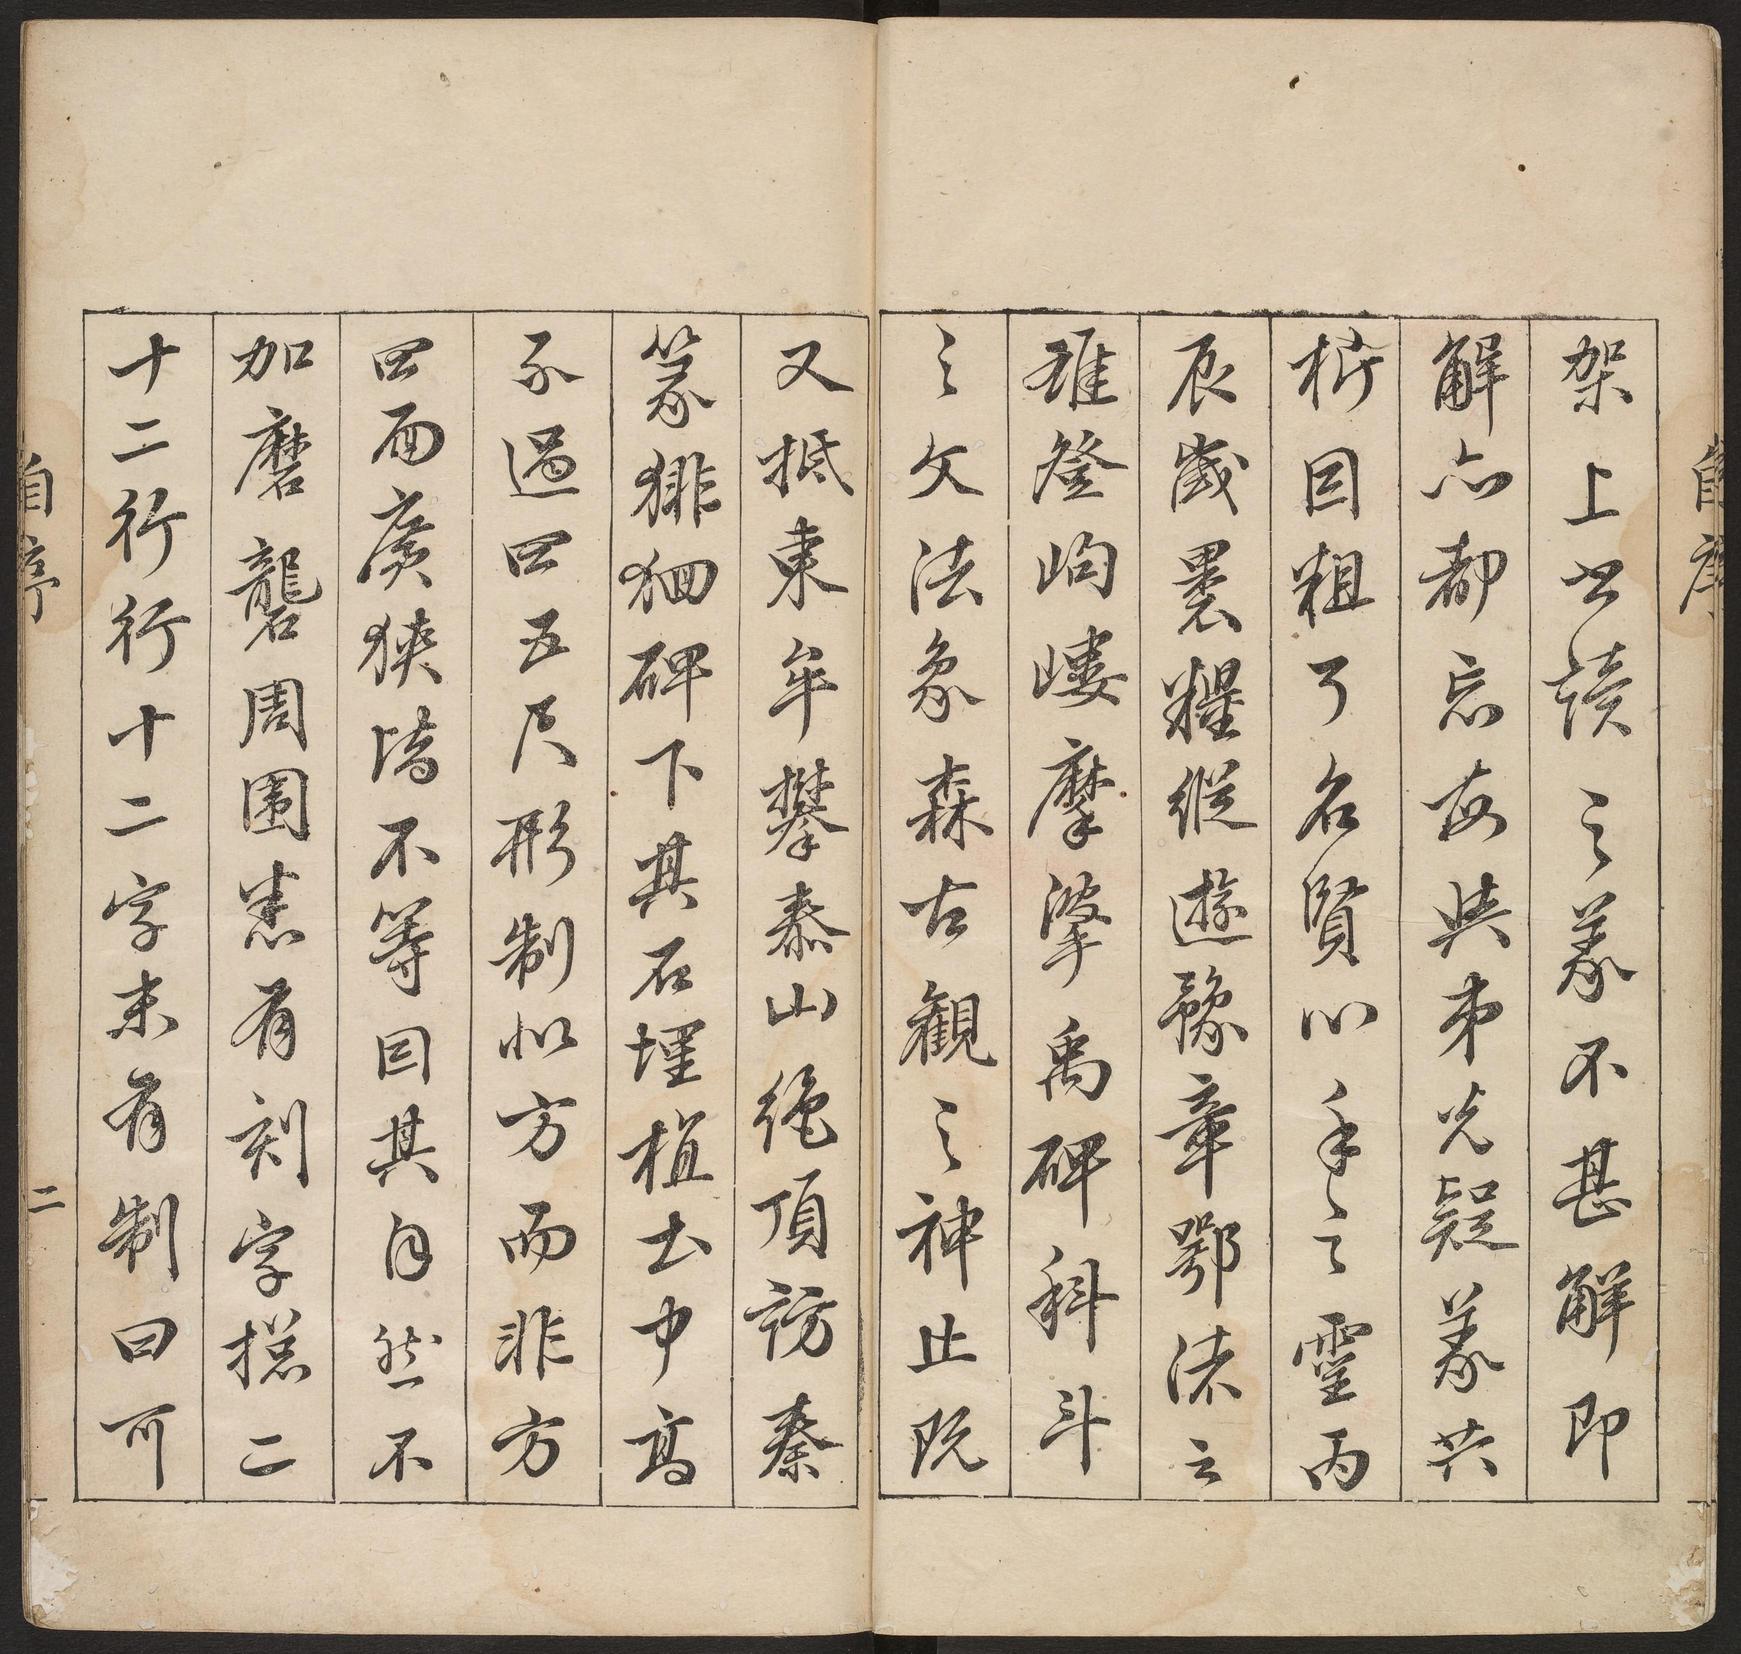 架上書讀之義不甚解即
解亦都忘每與弟光疑義共
析因粗了名賢心手之靈丙
辰歲裹糧縱遊豫章鄂渚云
雖登岣嶁摩挲禹碑科斗
之文法象森古觀之神止既
又抵東牟攀泰山絕頂訪秦
篆徘徊碑下其石埋植土中高
不過四五尺形制似方而非方
四面廣狹皆不等因其自然不
加磨礱周圍悉有刻字摠二
十二行行十二字末有制曰可
自序
二
自序